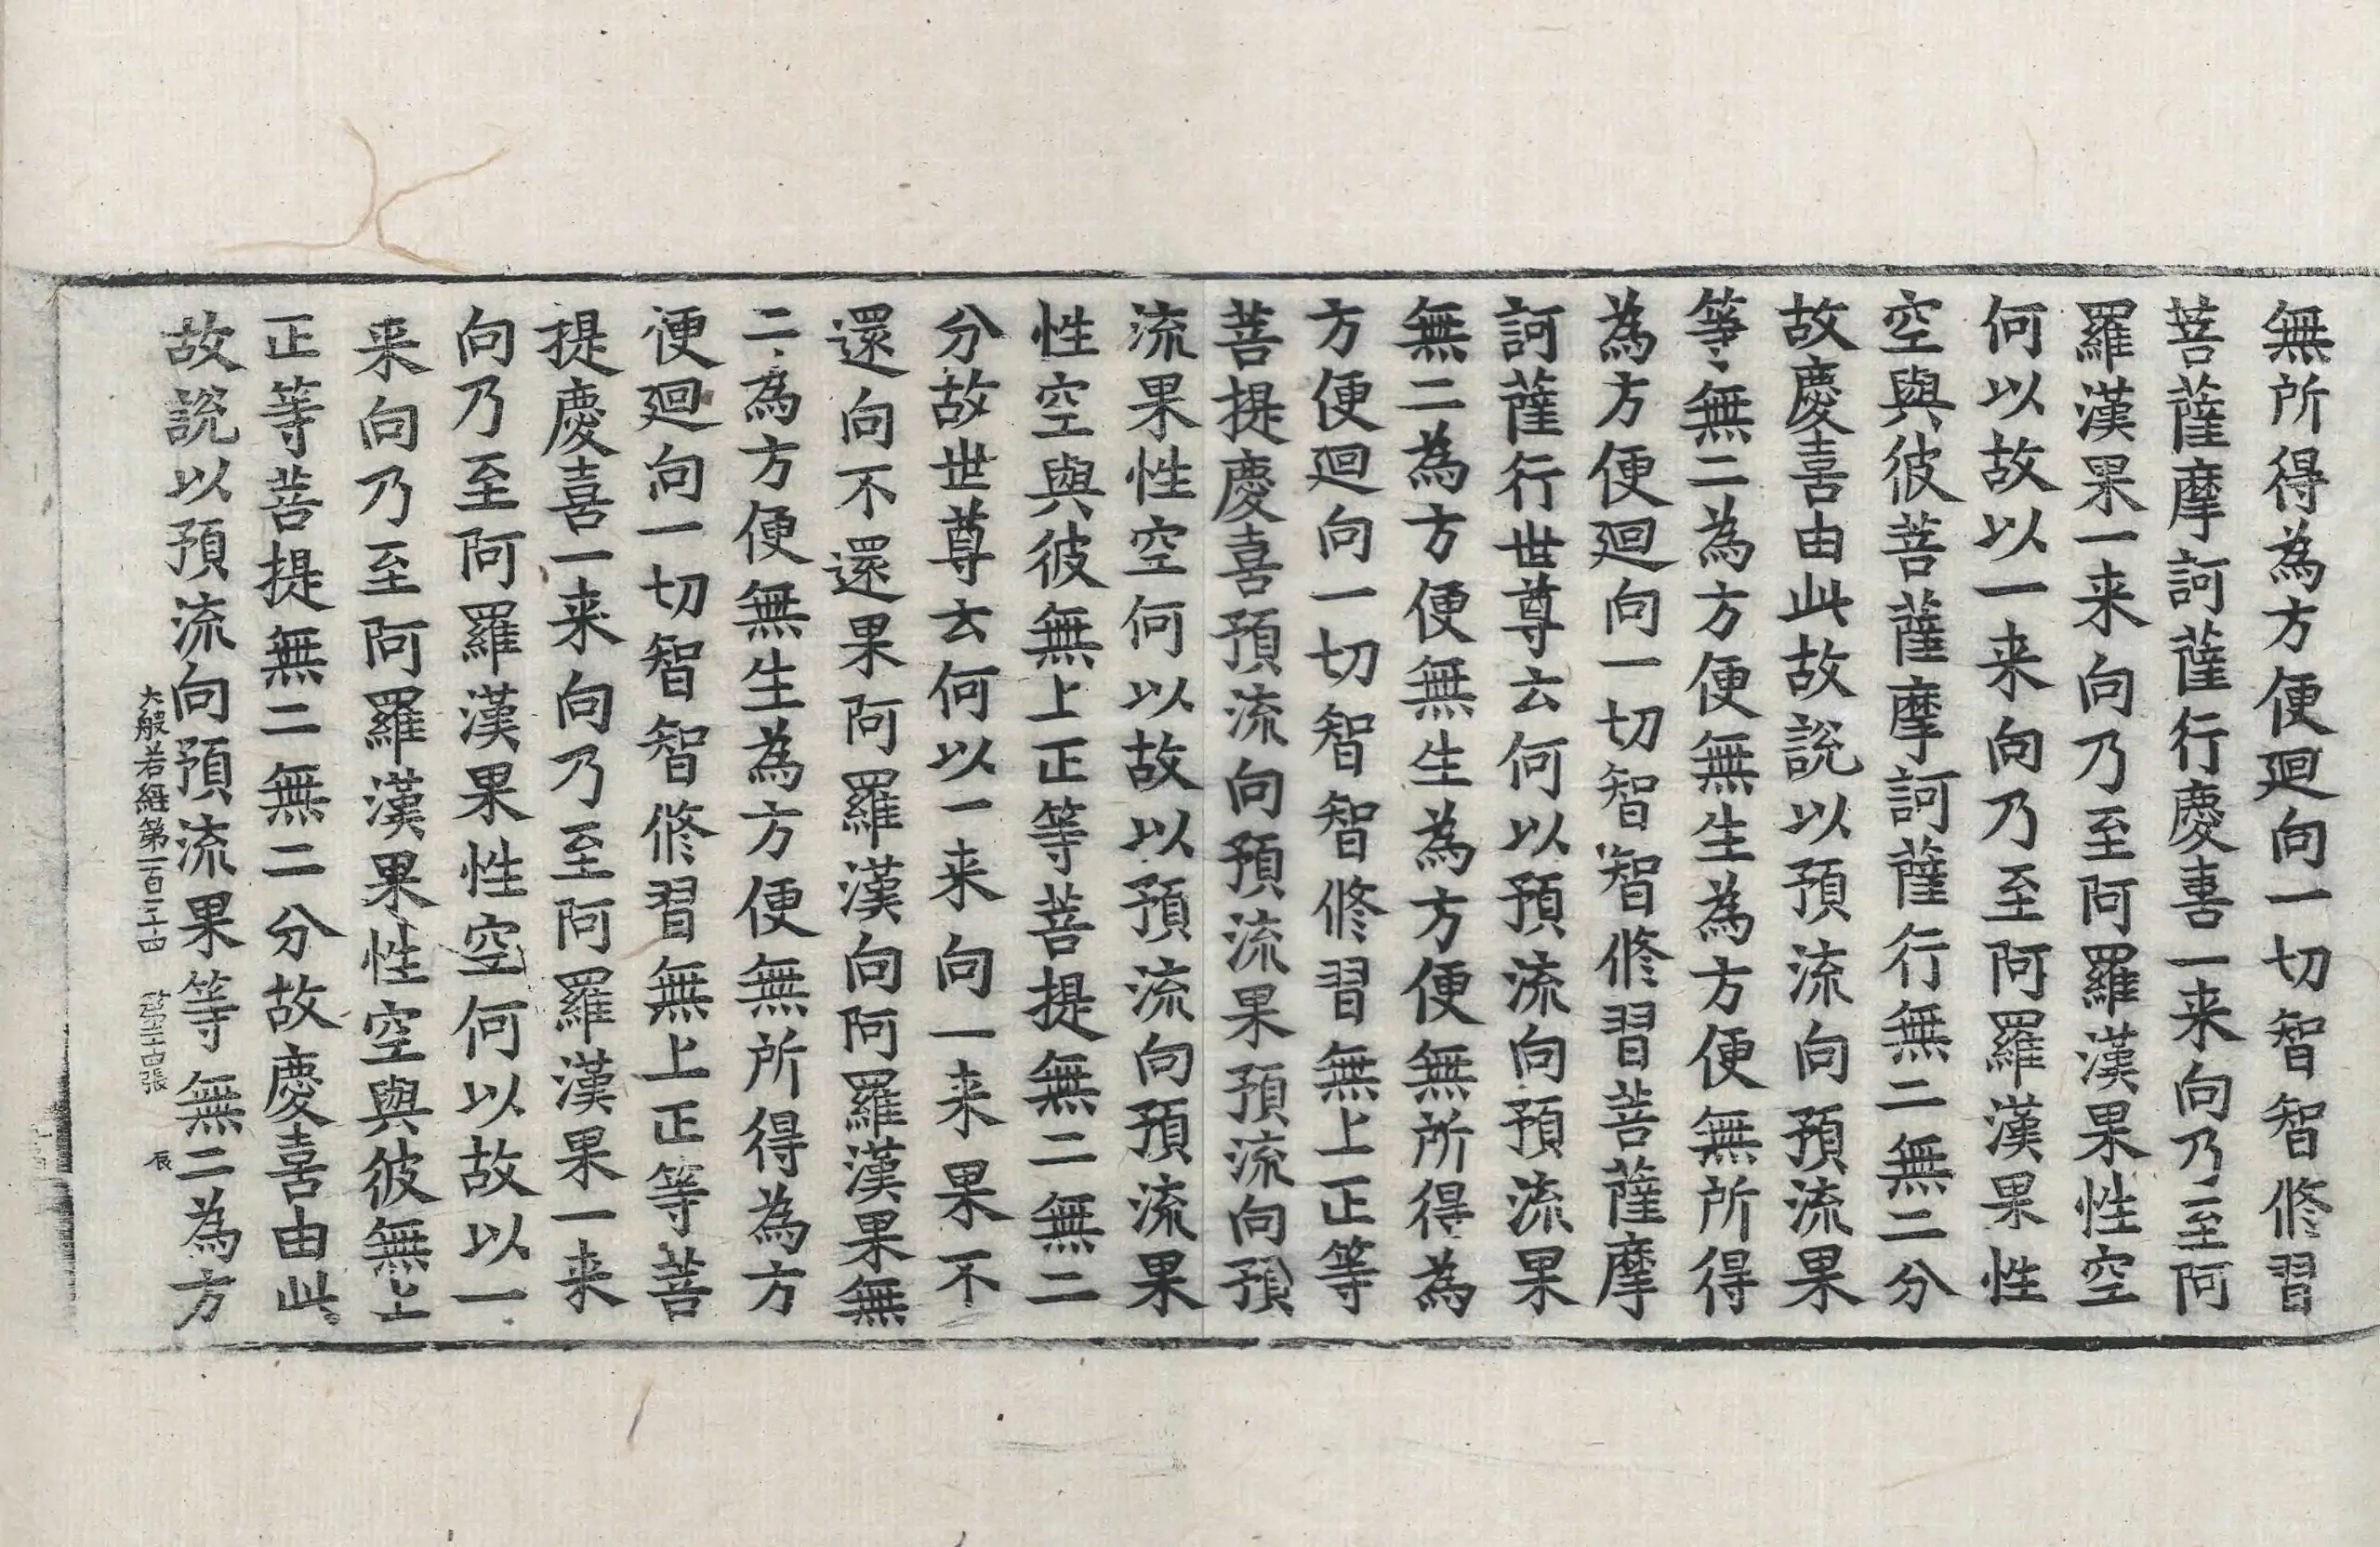 無所得為方便迴向一切智智修習
菩薩摩訶薩行慶喜一来向乃至阿
羅漢果一来向乃至阿羅漢果性空
何以故以一来向乃至阿羅漢果性
空與彼菩薩摩訶薩行無二無二分
故慶喜由此故說以預流向預流果
等無二為方便無生為方便無所得
為方便迴向一切智智修習菩薩摩
訶薩行世尊云何以預流向預流果
無二為方便無生為方便無所得為
方便迴向一切智智修習無上正等
菩提慶喜預流向預流果預流向預
流果性空何以故以預流向預流果
性空與彼無上正等菩提無二無二
分故世尊云何以一来向一来果不
還向不還果阿羅漢向阿羅漢果無
二為方便無生為方便無所得為方
便迴向一切智智修習無上正等菩
提慶喜一来向乃至阿羅漢果一来
向乃至阿羅漢果性空何以故以一
来向乃至阿羅漢果性空與彼無上
正等菩提無二無二分故慶喜由此
故說以預流向預流果等無二為方
大般若經第一百二十四 第張 辰